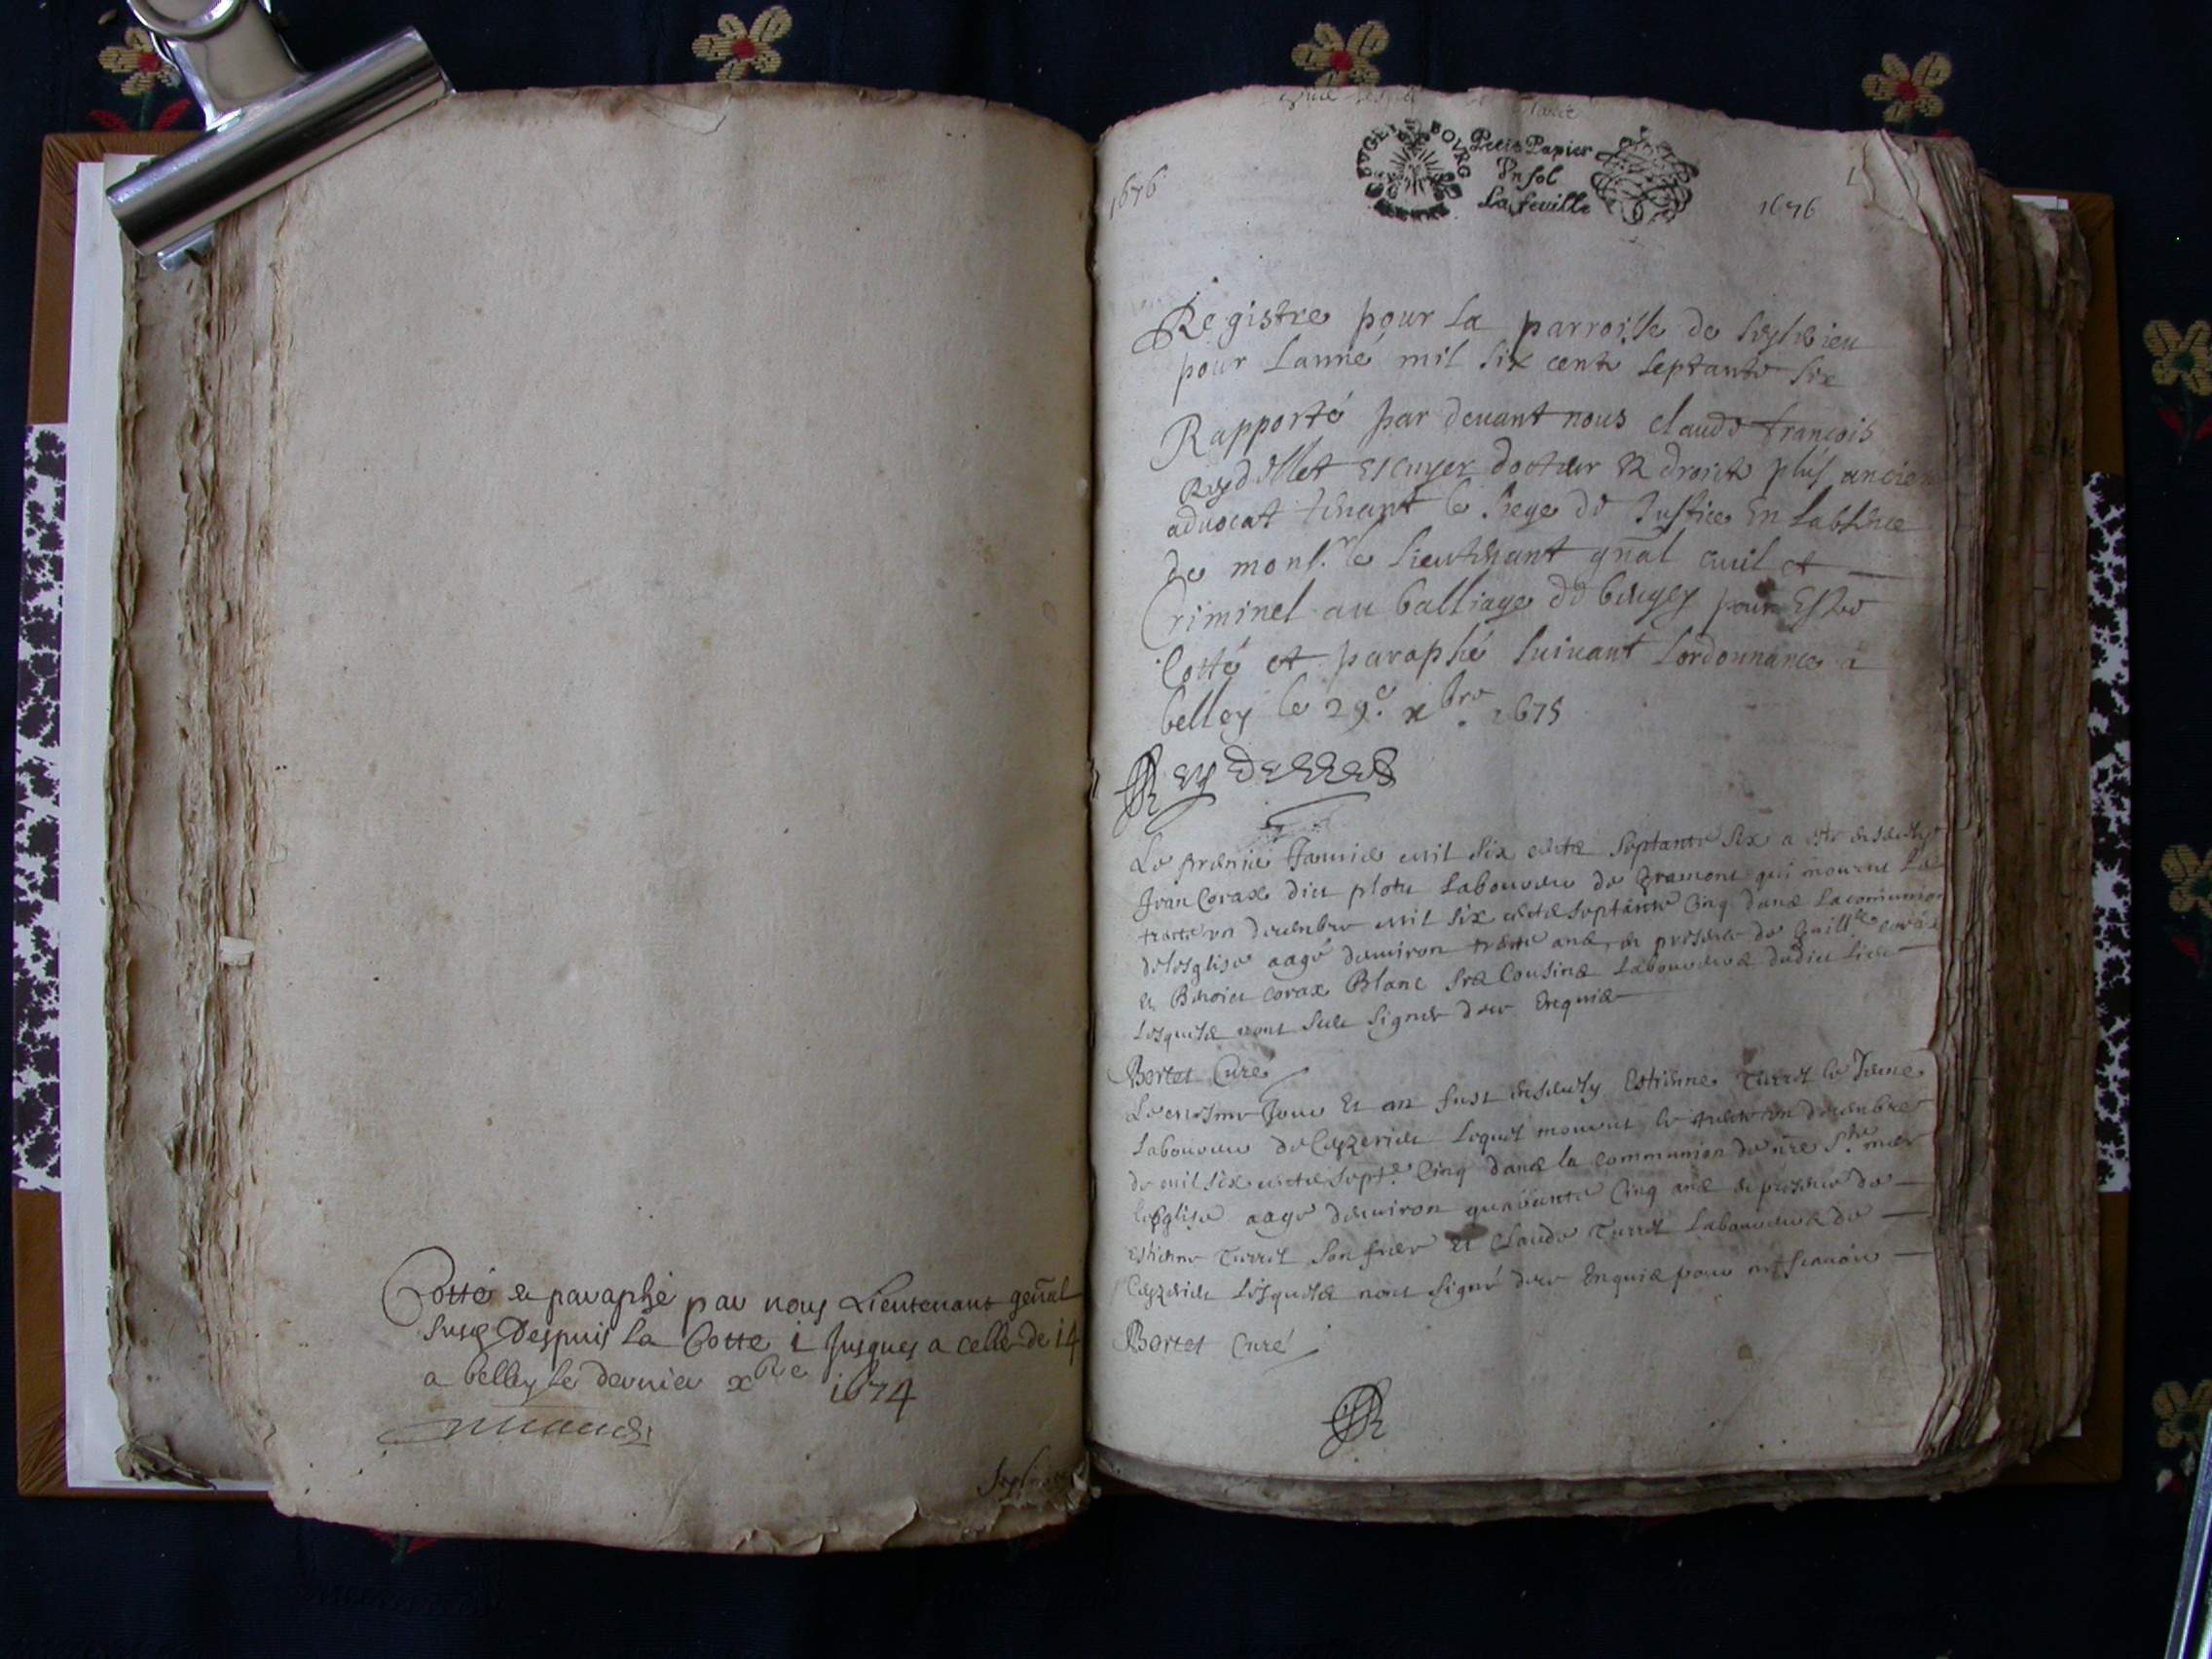 Cotté et paraphé par nous Lieutenant gen̄al
susd Despuis la Cotte 1 Jusques a celle de 14
a belley le dernier xbre 1674
1676
BVGEY BOVRG
Petit Papier
Vn sol
La feuille
1676
1
Registre pour la parroisse de
pour Lanné mil six cent septante six
Rapporté par deuant nous claude françois
Reydellet escuyer docteur es droict plus ancien
aduocat tenant le siege de Justice en labsence
de monsr le lieutenant gn̄al ciuil et
Criminel au balliage de beugey pour estre
Cotté et paraphé suiuant lordonnance a
belley le 29e xbre 1675
Reydellet
Le premie Januie mil six cents septante six a este enseuely
Jean Corax dict laboureur de qui mourut le
trente vn decembre mil six cents septante cinq dans la communion
de lesglise aagé denuiron trente ans, en presence de Guille corax
et Benoict corax Blanc cousins laboureurs dudict lieu
lesquels nont sceu signer de ce Enquis
Bertet Curé
Le mesme Jour et an fust enseuely Estienne Tierret le Jeune
laboureur de Ceyzerieu lequel mourut le trente vn decembre
de mil six cents septe cinq dans la communion de nr̄e Ste mere
lesglise aage denuiron quarante cinq ans en presence de
Estienne Tierret son frere et Claude Tierret laboureurs de
Ceyzerieu lesquels nont signé de ce Enquis pour ne scauoir
Bertet Curé